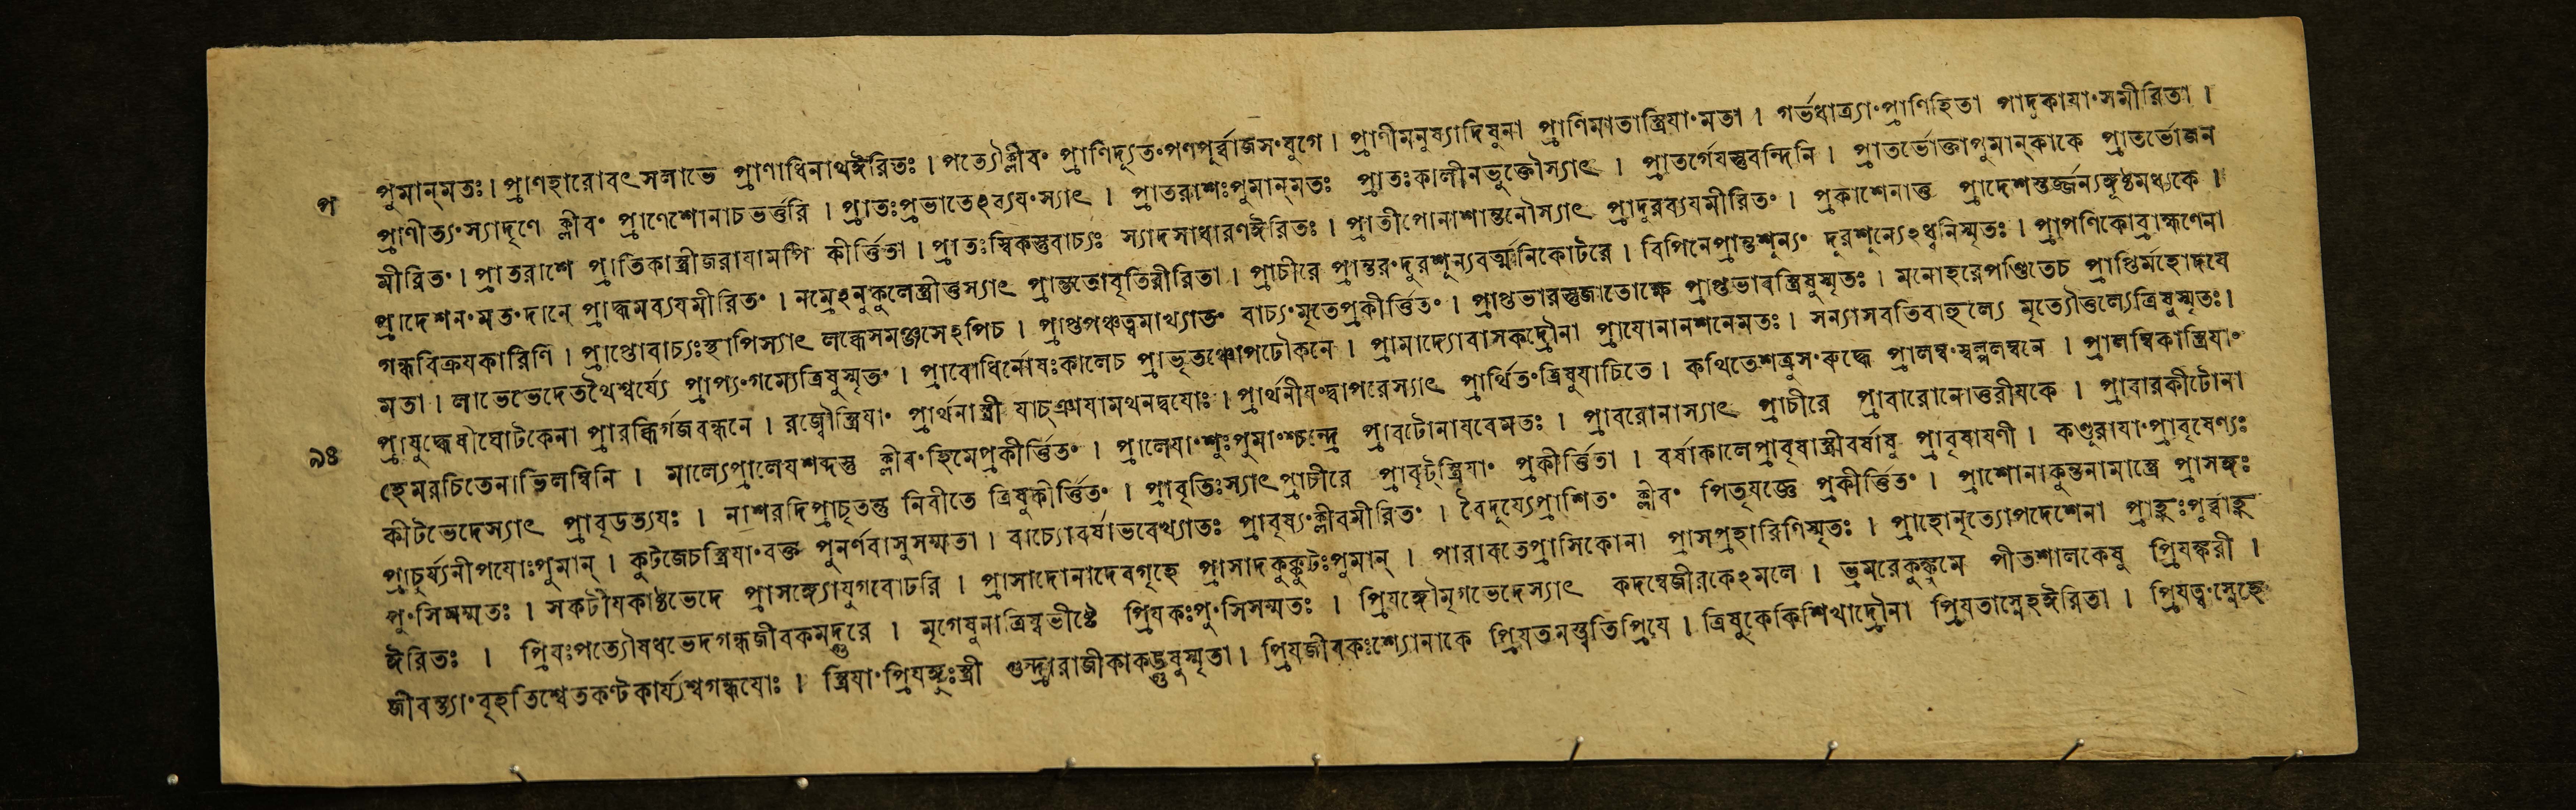 প পুমান্মতঃ। প্রাণহারোবৎসলাভে প্রাণাধিনাথঈরিতঃ। পত্যৌক্লীবং প্রাণিদ্যূতংপণপূর্ব্বাজসংযুগে। প্রাণীমনুষ্যাদিষুনা প্রাণিমাতাস্ত্রিয়াংমতা। গর্ভধাত্র্যাংপ্রাণিহিতা পাদুকায়াংসমীরিতা।
প্রাণীত্যংস্যাদৃণে ক্লীবং প্রাণেশোনাচভর্ত্তরি। প্রাতঃপ্রভাতেঽব্যয়ংস্যাৎ। প্রাতরাশঃপুমান্মতঃ প্রাতঃকালীনভুক্তৌস্যাৎ। প্রাতর্গেয়স্তুবন্দিনি। প্রাতর্ভোক্তাপুমান্কাকে প্রাতর্ভোজন
মীরিতং। প্রাতরাশে প্রাতিকাস্ত্রীজরায়ামপি কীর্ত্তিতা। প্রাতঃস্বিকস্তুবাচ্যঃ স্যাদসাধারণঈরিতঃ। প্রাতীপোনাশান্তনৌস্যাৎ প্রাদুরব্যয়মীরিতং। প্রকাশেনাত্তু প্রাদেশস্তর্জ্জন্যঙ্গুষ্ঠমধ্যকে।
প্রাদেশনংমতংদানে প্রাহ্মমব্যয়মীরিতং। নম্রেঽনুকূলেস্ত্রীতুস্যাৎ প্রান্ততোবৃতিরীরিতা। প্রাচীরে প্রান্তরংদূরশূন্যবর্ত্মনিকোটরে। বিপিনেপ্রান্তশূন্যং দূরশূন্যেঽধ্বনিস্মৃতঃ। প্রাপণিকোব্রাহ্মণেনা
গন্ধবিক্রয়কারিণি। প্রাপ্তোবাচ্যঃস্থাপিস্যাৎ লব্ধেসমঞ্জসেঽপিচ। প্রাপ্তপঞ্চত্বমাখ্যাতং বাচ্যংমৃতেপ্রকীর্ত্তিতং। প্রাপ্তভারস্তুজাতোক্ষে প্রাপ্তভাবস্ত্রিষুস্মৃতঃ। মনোহরেপণ্ডিতেচ প্রাপ্তির্মহোদয়ে
মতা। লাভেভেদেতথৈশ্বর্য্যে প্রাপ্যংগম্যেত্রিষুস্মৃতং। প্রাবোধির্নোষঃকালেচ প্রাভৃতঞ্চোপঢৌকনে। প্রামাদ্যোবাসকদ্রৌনা প্রায়োনানশনেমতঃ। সন্যাসবতিবাহুল্যে মৃত্যৌতুল্যেত্রিষুস্মৃতঃ।
প্রাযুদ্ধেষীঘোটকেনা প্রারব্ধির্গজবন্ধনে। রজ্জৌস্ত্রিয়াং প্রার্থনাস্ত্রী যাচ্ঞায়ামথনদ্বয়োঃ। প্রার্থনীয়ংদ্বাপরেস্যাৎ প্রার্থিতংত্রিষুযাচিতে। কথিতেশত্রুসংরুদ্ধে প্রালম্বংস্বল্পলম্বনে। প্রালম্বিকাস্ত্রিয়াং
৯৪ হেমরচিতেনাভিলম্বিনি। মাল্যেপ্রালেয়শব্দস্তু ক্লীবংহিমেপ্রকীর্ত্তিতং। প্রালেয়াংশুঃপুমাংশ্চন্দ্রে প্রাবটোনাযবেমতঃ। প্রাবরোনাস্যাৎ প্রাচীরে প্রাবারোনোত্তরীয়কে। প্রাবারকীটোনা
কীটভেদেস্যাৎ প্রাবৃডত্যয়ঃ। নাশরদিপ্রাচৃতন্তু নিবীতে ত্রিষুকীর্ত্তিতং। প্রাবৃতিঃস্যাৎপ্রাচীরে প্রাবৃট্স্ত্রিয়াং প্রকীর্ত্তিতা। বর্ষাকালেপ্রাবৃষাস্ত্রীবর্ষাষু প্রাবৃষায়ণী। কণ্ডুরায়াংপ্রাবৃষেণ্যঃ
প্রাচুর্য্যনীপয়োঃপুমান্। কুটজেচস্ত্রিয়াংবক্ত পুনর্ণবাসুসম্মতা। বাচ্যোবর্ষাভবেখ্যাতঃ প্রাবৃষ্যংক্লীবমীরিতং। বৈদূর্য্যেপ্রাশিতং ক্লীবং পিতৃযজ্ঞে প্রকীর্ত্তিতং। প্রাশোনাকুন্তনামাস্ত্রে প্রাসঙ্গঃ
পুংসিসম্মতঃ। সকটীয়কাষ্ঠভেদে প্রাসঙ্গ্যোযুগবোঢরি। প্রাসাদোনাদেবগৃহে প্রাসাদকুক্কুটঃপুমান্। পারাবতেপ্রাসিকোনা প্রাসপ্রহারিণিস্মৃতঃ। প্রাহোনৃত্যোপদেশেনা প্রাহ্ণঃপূর্ব্বাহ্ণ
ঈরিতঃ। প্রিয়ঃপত্যৌষধভেদগন্ধজীবকমদ্গুরে। মৃগেষুনাত্রিষ্বভীষ্টে প্রিয়কঃপুংসিসম্মতঃ। প্রিয়ঙ্গৌমৃগভেদেস্যাৎ কদম্বেজীরকেঽমলে। ভ্রমরেকুঙ্কুমে পীতশালকেষু প্রিয়ঙ্করী।
জীবন্ত্যাংবৃহতিশ্বেতকণ্টকার্য্যশ্বগন্ধয়োঃ। স্ত্রিয়াংপ্রিয়ঙ্গুঃস্ত্রী গুন্দ্রারাজীকাকঙ্গুষুস্মৃতা। প্রিয়জীবকঃশ্যোনাকে প্রিয়তনস্ত্বতিপ্রিয়ে। ত্রিষুকেকিশিখাদ্রৌনা প্রিয়তাস্নেহঈরিতা। প্রিয়ত্বংস্নেহে